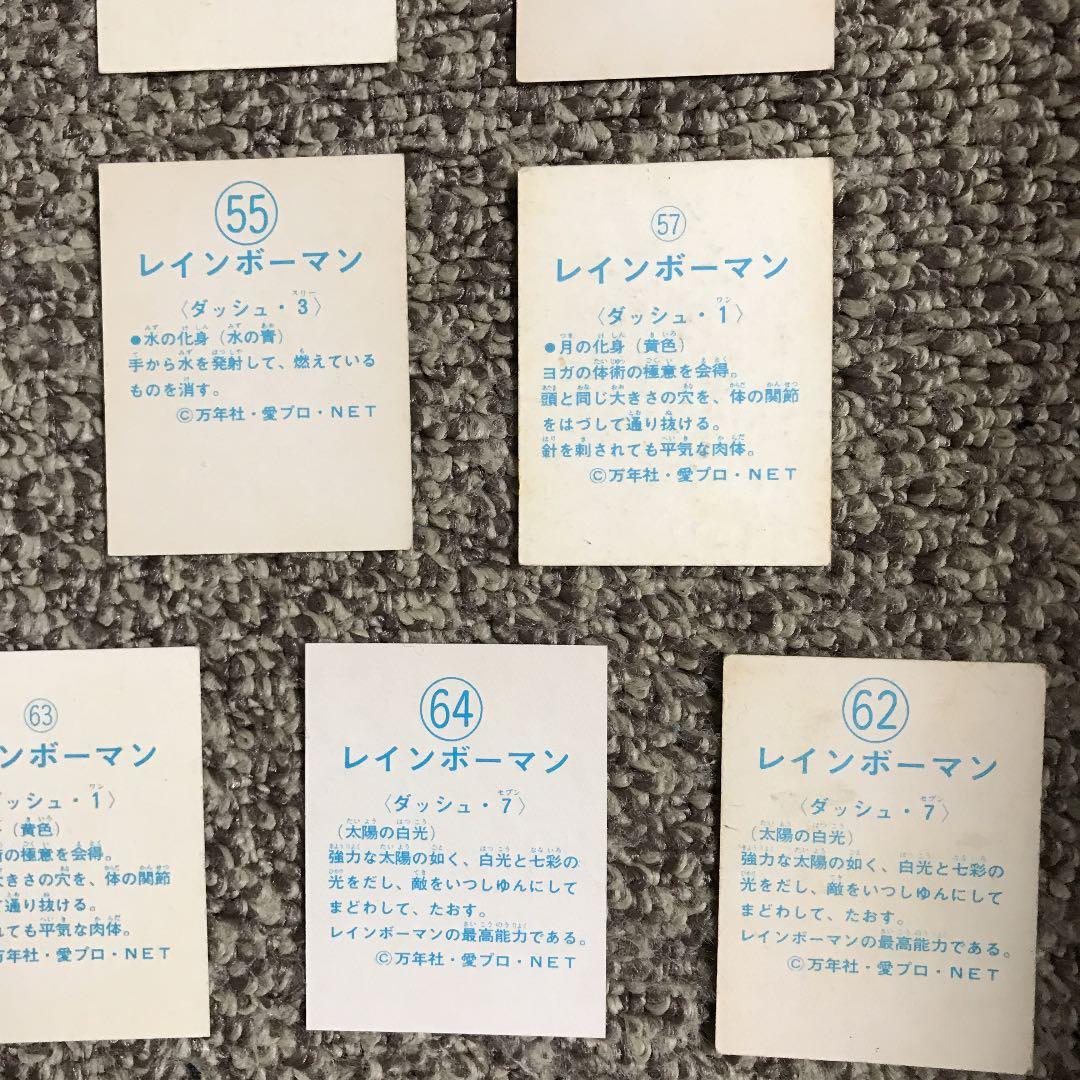 55
レインボーマン
〈ダッシュ・3〉
●水の化身（水の青）
手から水を発射して、燃えている
ものを消す。
©万年社・愛プロ・NET
57
レインボーマン
〈ダッシュ・1〉
●月の化身（黄色）
ヨガの体術の極意を会得。
頭と同じ大きさの穴を、体の関節
をはづして通り抜ける。
針を刺されても平気な肉体。
©万年社・愛プロ・NET
63
ンボーマン
ッシュ・1〉
（黄色）
の極意を会得。
きさの穴を、体の関節
通り抜ける。
ても平気な肉体。
年社・愛プロ・NET
64
レインボーマン
〈ダッシュ・7〉
（太陽の白光）
強力な太陽の如く、白光と七彩の
光をだし、敵をいつしゆんにして
まどわして、たおす。
レインボーマンの最高能力である。
©万年社・愛プロ・NET
62
レインボーマン
〈ダッシュ・7〉
（太陽の白光）
強力な太陽の如く、白光と七彩の
光をだし、敵をいつしゆんにして
まどわして、たおす。
レインボーマンの最高能力である。
©万年社・愛プロ・NET